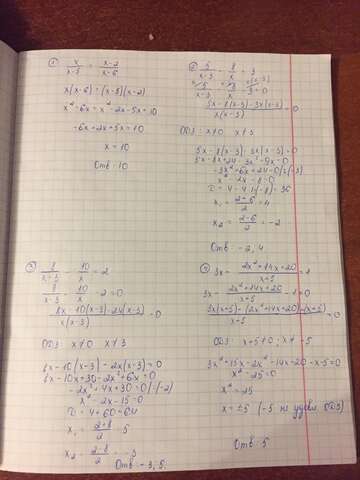 ① x/(x-5) = (x-2)/(x-6)
x(x-6) = (x-5)(x-2)
x² - 6x = x² - 2x - 5x + 10
-6x + 2x + 5x = 10
x = 10
Отв: 10
② 5/(x-3) - 8/x = 3
5/(x-3) - 8/x - 3 = 0
(5x - 8(x-3) - 3x(x-3))/(x(x-3)) = 0
ОДЗ: x≠0 x≠3
5x - 8(x-3) - 3x(x-3) = 0
5x - 8x + 24 - 3x² + 9x = 0
-3x² + 6x + 24 = 0 |:(-3)
x² - 2x - 8 = 0
D = 4 - 4·1·(-8) = 36
x₁ = (2+6)/2 = 4
x₂ = (2-6)/2 = -2
Отв: -2, 4
③ 8/(x-3) - 10/x = 2
8/(x-3) - 10/x - 2 = 0
(8x - 10(x-3) - 2x(x-3))/(x(x-3)) = 0
ОДЗ: x≠0 x≠3
8x - 10(x-3) - 2x(x-3) = 0
8x - 10x + 30 - 2x² + 6x = 0
-2x² + 4x + 30 = 0 |:(-2)
x² - 2x - 15 = 0
D = 4 + 60 = 64
x₁ = (2+8)/2 = 5
x₂ = (2-8)/2 = -3
Отв: -3, 5
④ 3x - (2x²+14x+20)/(x+5) = 1
3x - (2x²+14x+20)/(x+5) - 1 = 0
(3x(x+5) - (2x²+14x+20) - (x+5))/(x+5) = 0
ОДЗ: x+5≠0; x≠-5
3x² + 15x - 2x² - 14x - 20 - x - 5 = 0
x² - 25 = 0
x² = 25
x = ±5 (-5 не удовл. ОДЗ)
Отв: 5